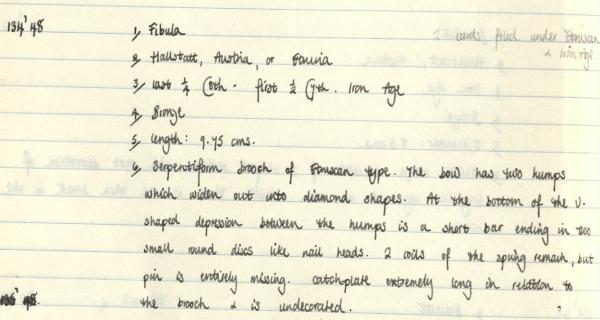 134'48
1, Fibula
2 cards filed under Etruscan
& Iron Age
2, Hallstatt, Austria, or Etruria
3, last ¼ C8th - first ½ C7th. Iron Age
4, Bronze
5, Length: 9.75 cms.
6, Serpentiform brooch of Etruscan type. The bow has two humps
which widen out into diamond shapes. At the bottom of the V-
shaped depression between the humps is a short bar ending in two
small round discs like nail heads. 2 coils of the spring remain, but
pin is entirely missing. Catchplate extremely long in relation to
the brooch & is undecorated.